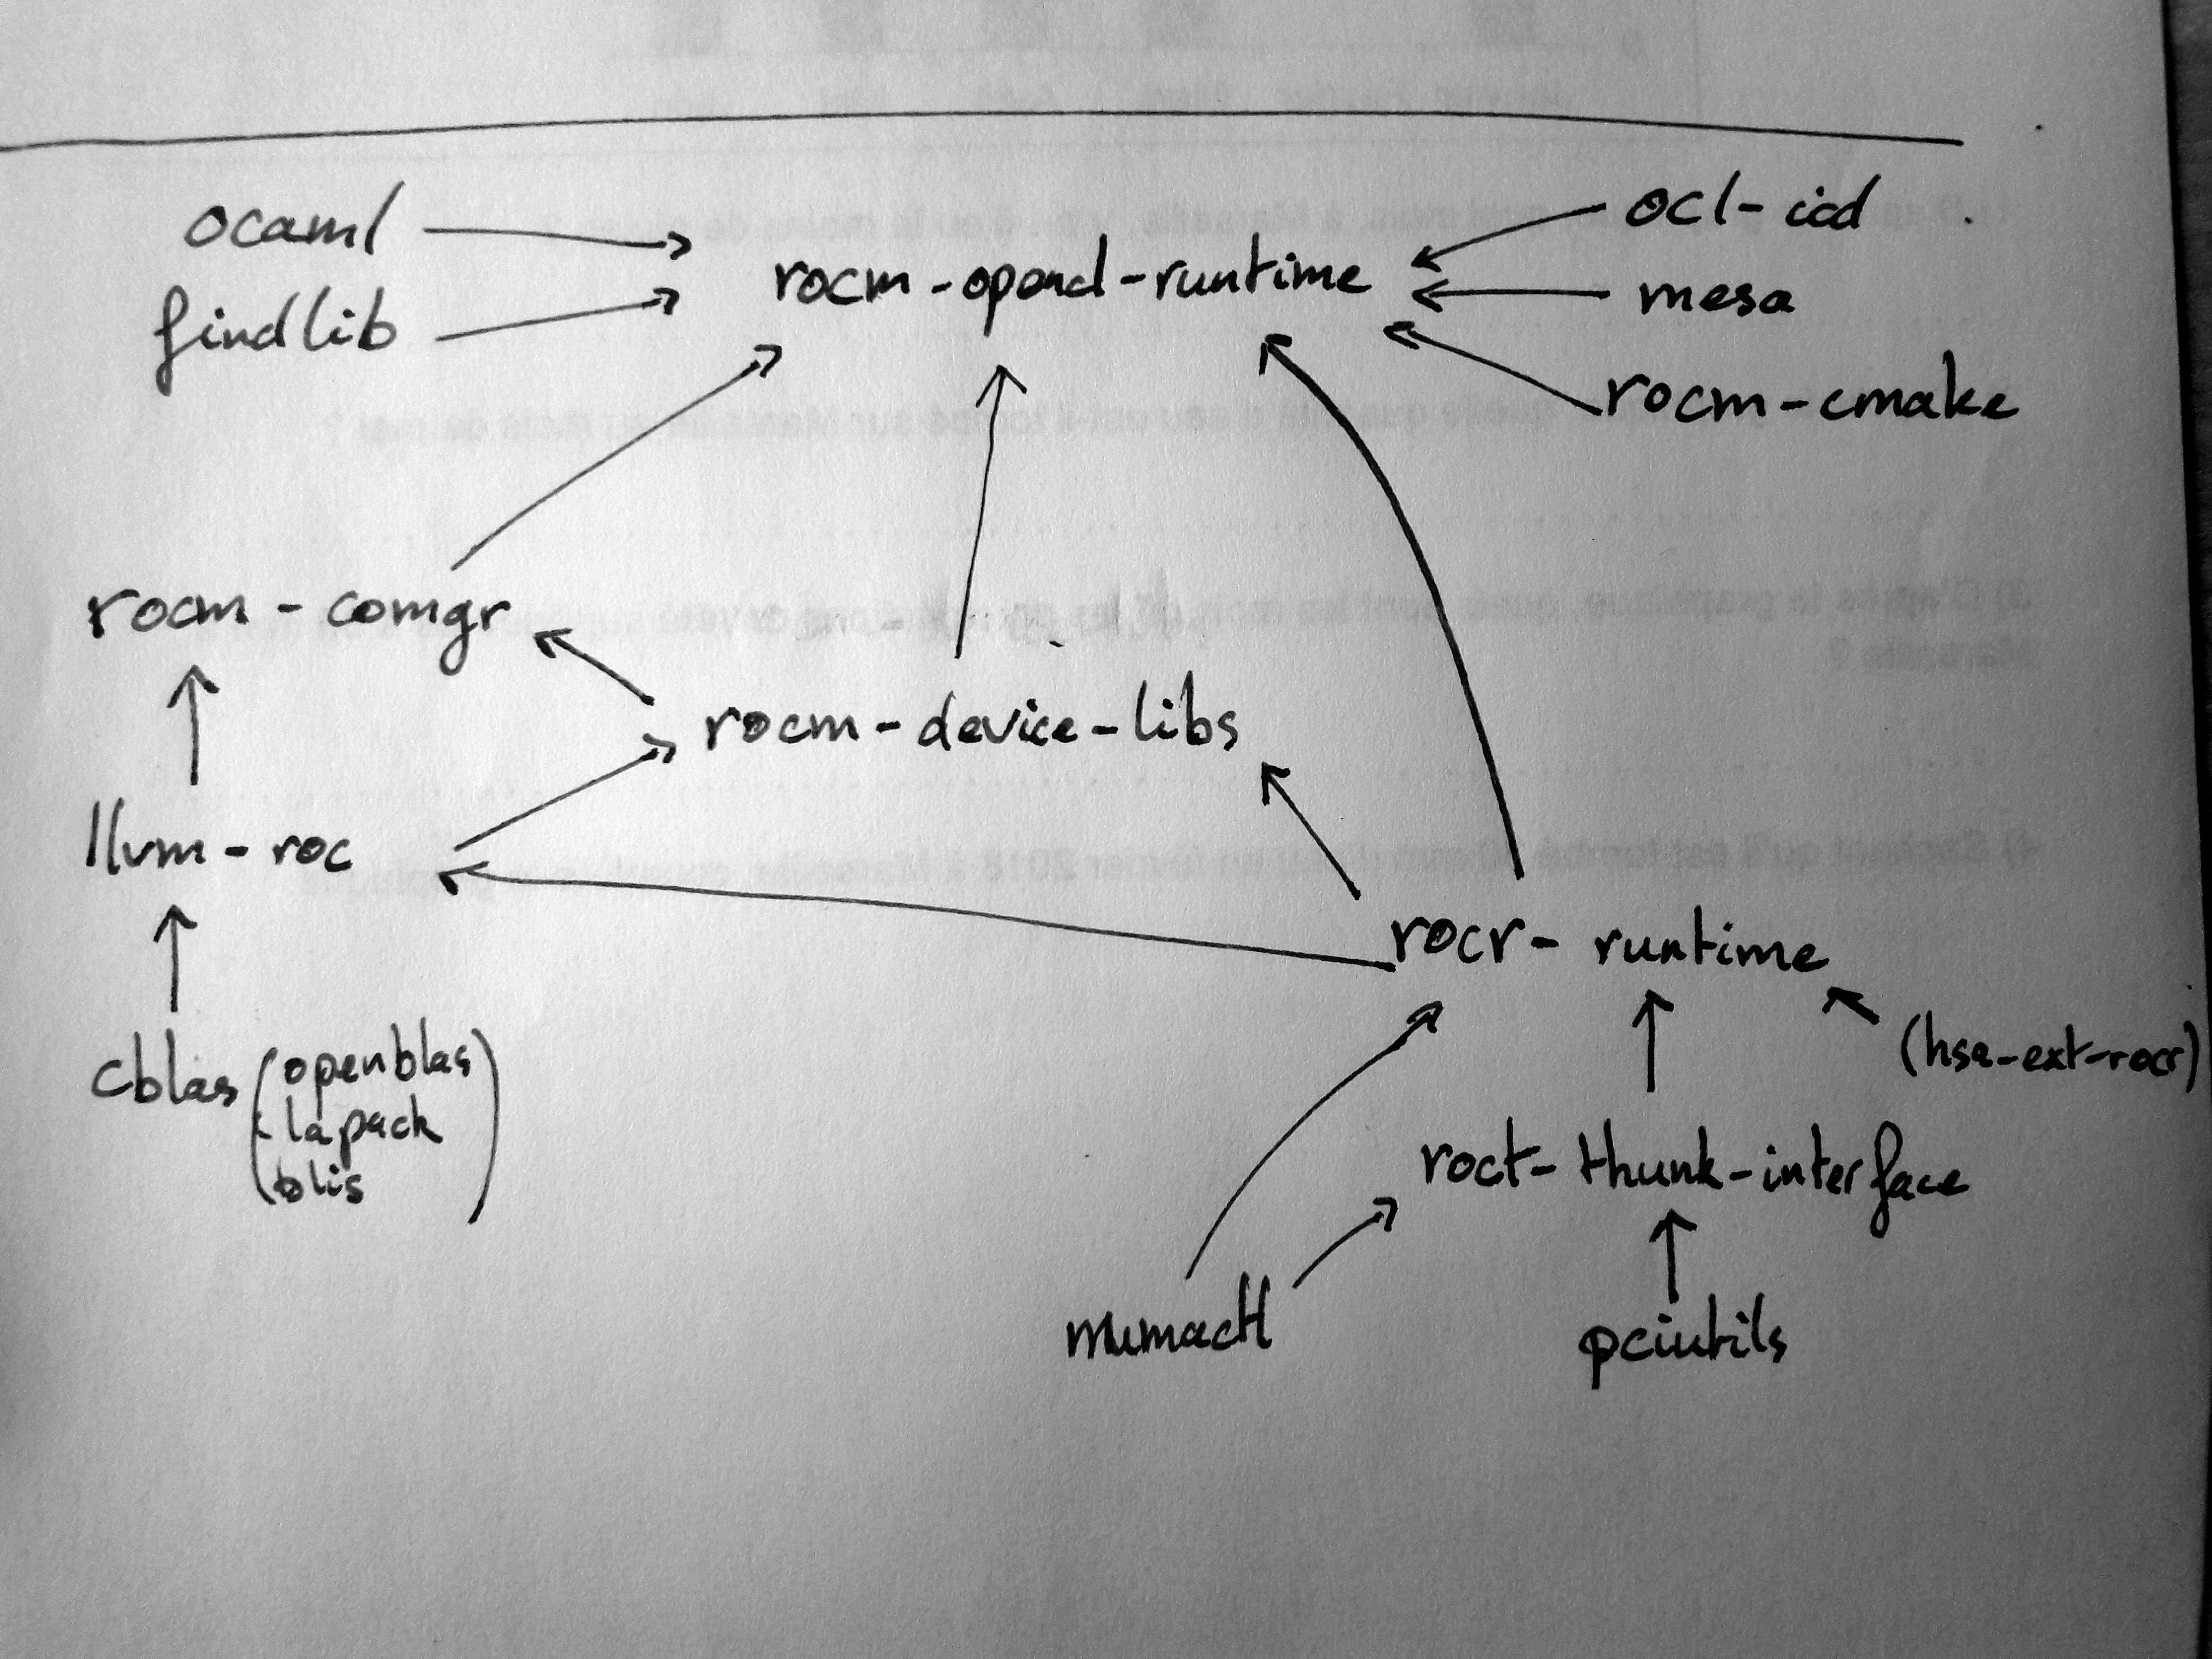 ocaml
findlib
rocm-opencl-runtime
ocl-icd
mesa
rocm-cmake
rocm-comgr
rocm-device-libs
llvm-roc
rocr-runtime
(hsa-ext-rocr)
cblas (openblas
lapack
blis)
roct-thunk-interface
numactl
pciutils